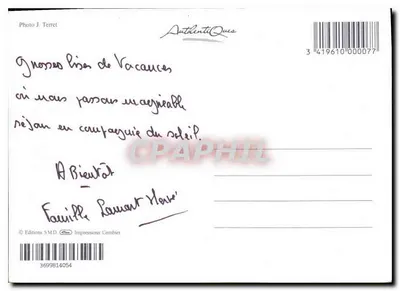 Photo J. Terret
AuthentiQues
3 419610 000077
Grosses bises de Vacances
où nous passons un agréable
séjour en compagnie du soleil.
CPAPHIL
A Bientôt
Famille Lamort Hervé
© Editions S.M.D. Imprimeur Cambien
3699814054